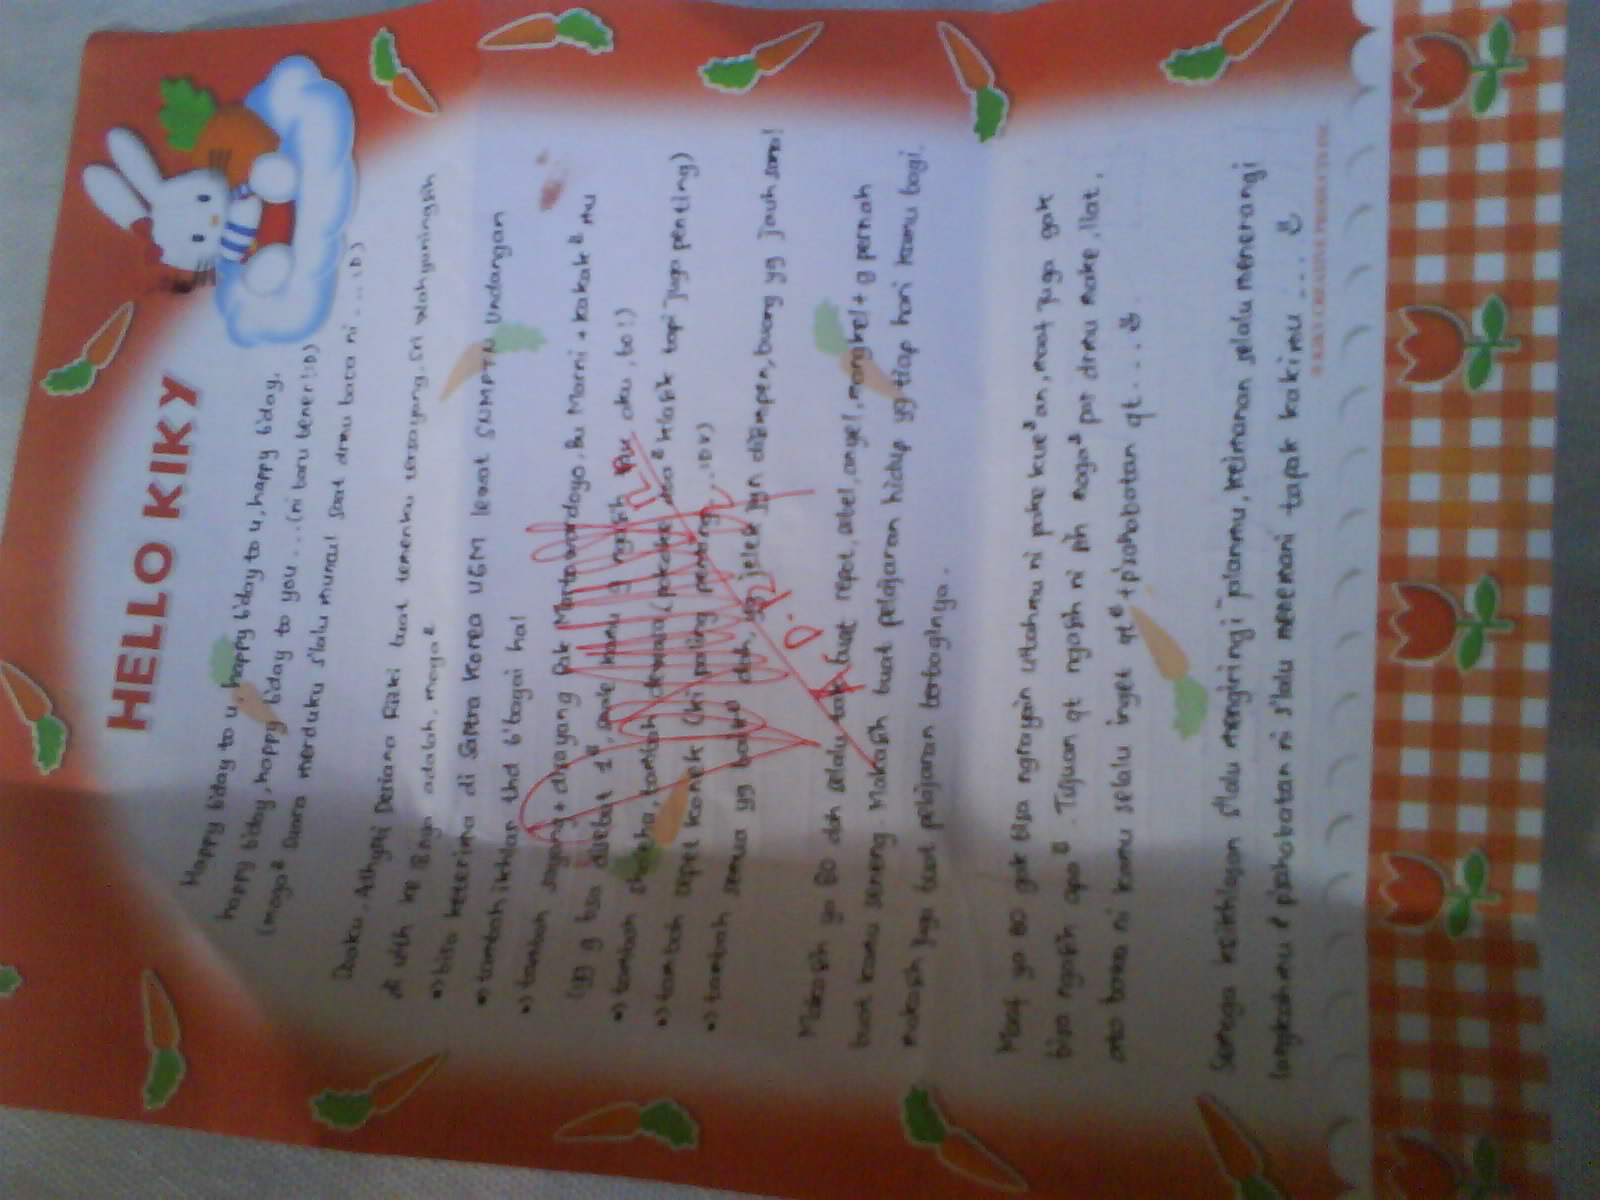 HELLO KIKY
Happy b'day to u, happy b'day to u, happy b'day,
happy b'day, happy b'day to you... (ni baru bener :D)
(moga² suara merduku s'lalu muncul saat drmu baca ni ... :D)
Doaku, Adhyni Perians Rizki buat temenku tersayang, Sri Wahyuningsih
di ulth ke adalah, moga²
•) bisa keterima di Sastra Korea UGM lewat SNMPTN Undangan
•) tambah ikhlas thd b'bagai hal
•) tambah sayang + disayang Pak Martowardoyo, Bu Marni + kakak² mu
(yg g bsa disebut 1², soale kamu g ngasih tau aku, bo :)
•) tambah sholeha, tambah dewasa ( klasik tapi juga penting)
•) tambah cepet konek (ni paling penting... :D)
•) tambah semua yg baik² dah, yg jelek jgn disimpen, buang yg jauh sana!
Makasih ya Bo dah selalu buat repot, sebel, anyel, mangkel + g pernah
buat kamu seneng. Makasih buat pelajaran hidup yg tiap hari kamu bagi.
makasih juga buat pelajaran terbaginya.
Maaf ya Bo gak bisa ngrayain ultahmu ni pake kue²an, maaf juga gak
bisa ngasih apa². Tujuan qt ngasih ni sih moga² pas drmu make, liat,
ato baca ni kamu selalu inget qt² + p'sahabatan qt...
Semoga keikhlasan s'lalu mengiringi jalanmu, keimanan selalu menerangi
langkahmu & p'sahabatan ni s'lalu menemani tapak kakimu ...